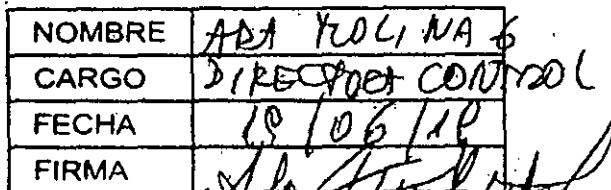 NOMBRE ADA MOLINA G
CARGO DIRECTORA CONTROL
FECHA 19/06/19
FIRMA